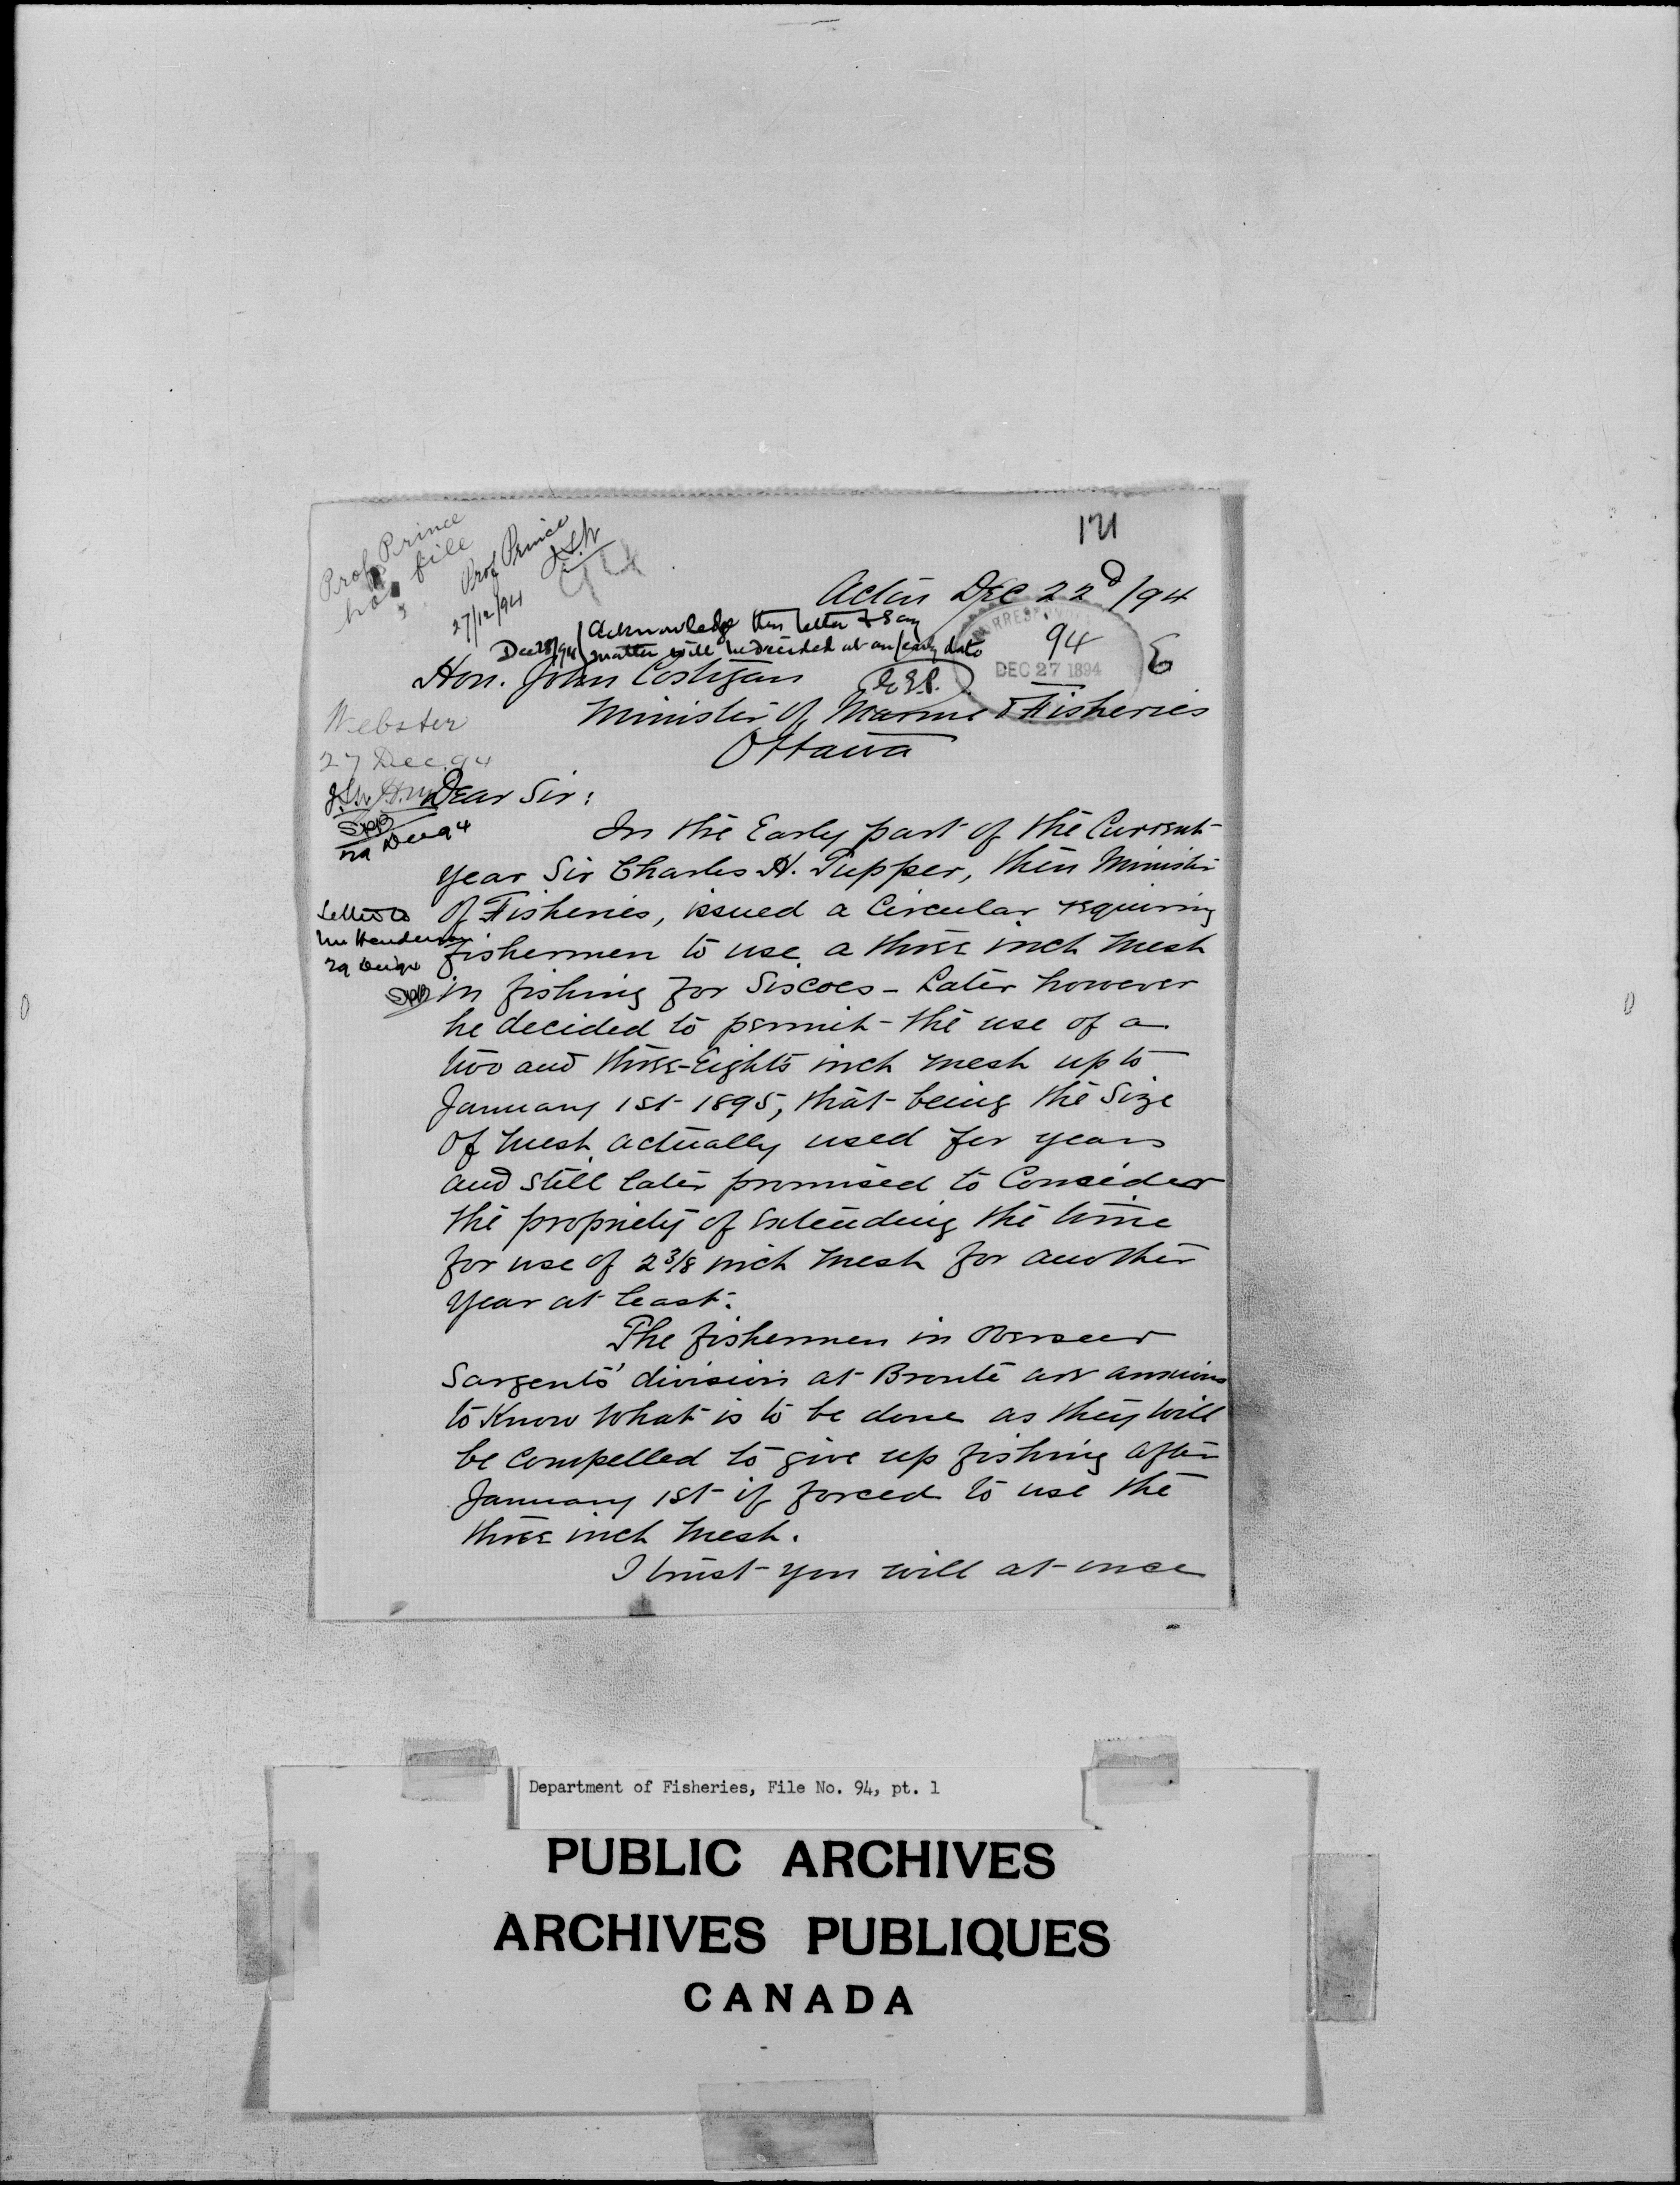 171
Prof Prince
has file
Prof Prince
27/12/94
94
Acton Dec 22d/94
Acknowledge this letter & say
Dec 28/94 matter will be decided at an early date
E.E.P.
94
DEC 27 1894
E
Hon. John Costigan
Minister of Marine & Fisheries
Ottawa
Webster
27 Dec. 94
29 Dec 94
Letter to
Mr Henderson
29 Dec 94
Dear Sir:
In the Early part of the Current
year Sir Charles H. Tupper, then Minister
of Fisheries, issued a Circular requiring
fishermen to use a three inch mesh
in fishing for Siscoes - Later however
he decided to permit the use of a
two and three-Eights inch mesh up to
January 1st 1895, that being the Size
of mesh actually used for years
and still later promised to Consider
the propriety of Extending the time
for use of 2 3/8 inch mesh for another
year at least.
The fishermen in Overseer
Sargents' division at Bronte are anxious
to Know what is to be done as they will
be Compelled to give up fishing after
January 1st if forced to use the
three inch mesh.
I trust you will at once
Department of Fisheries, File No. 94, pt. 1
PUBLIC ARCHIVES
ARCHIVES PUBLIQUES
CANADA